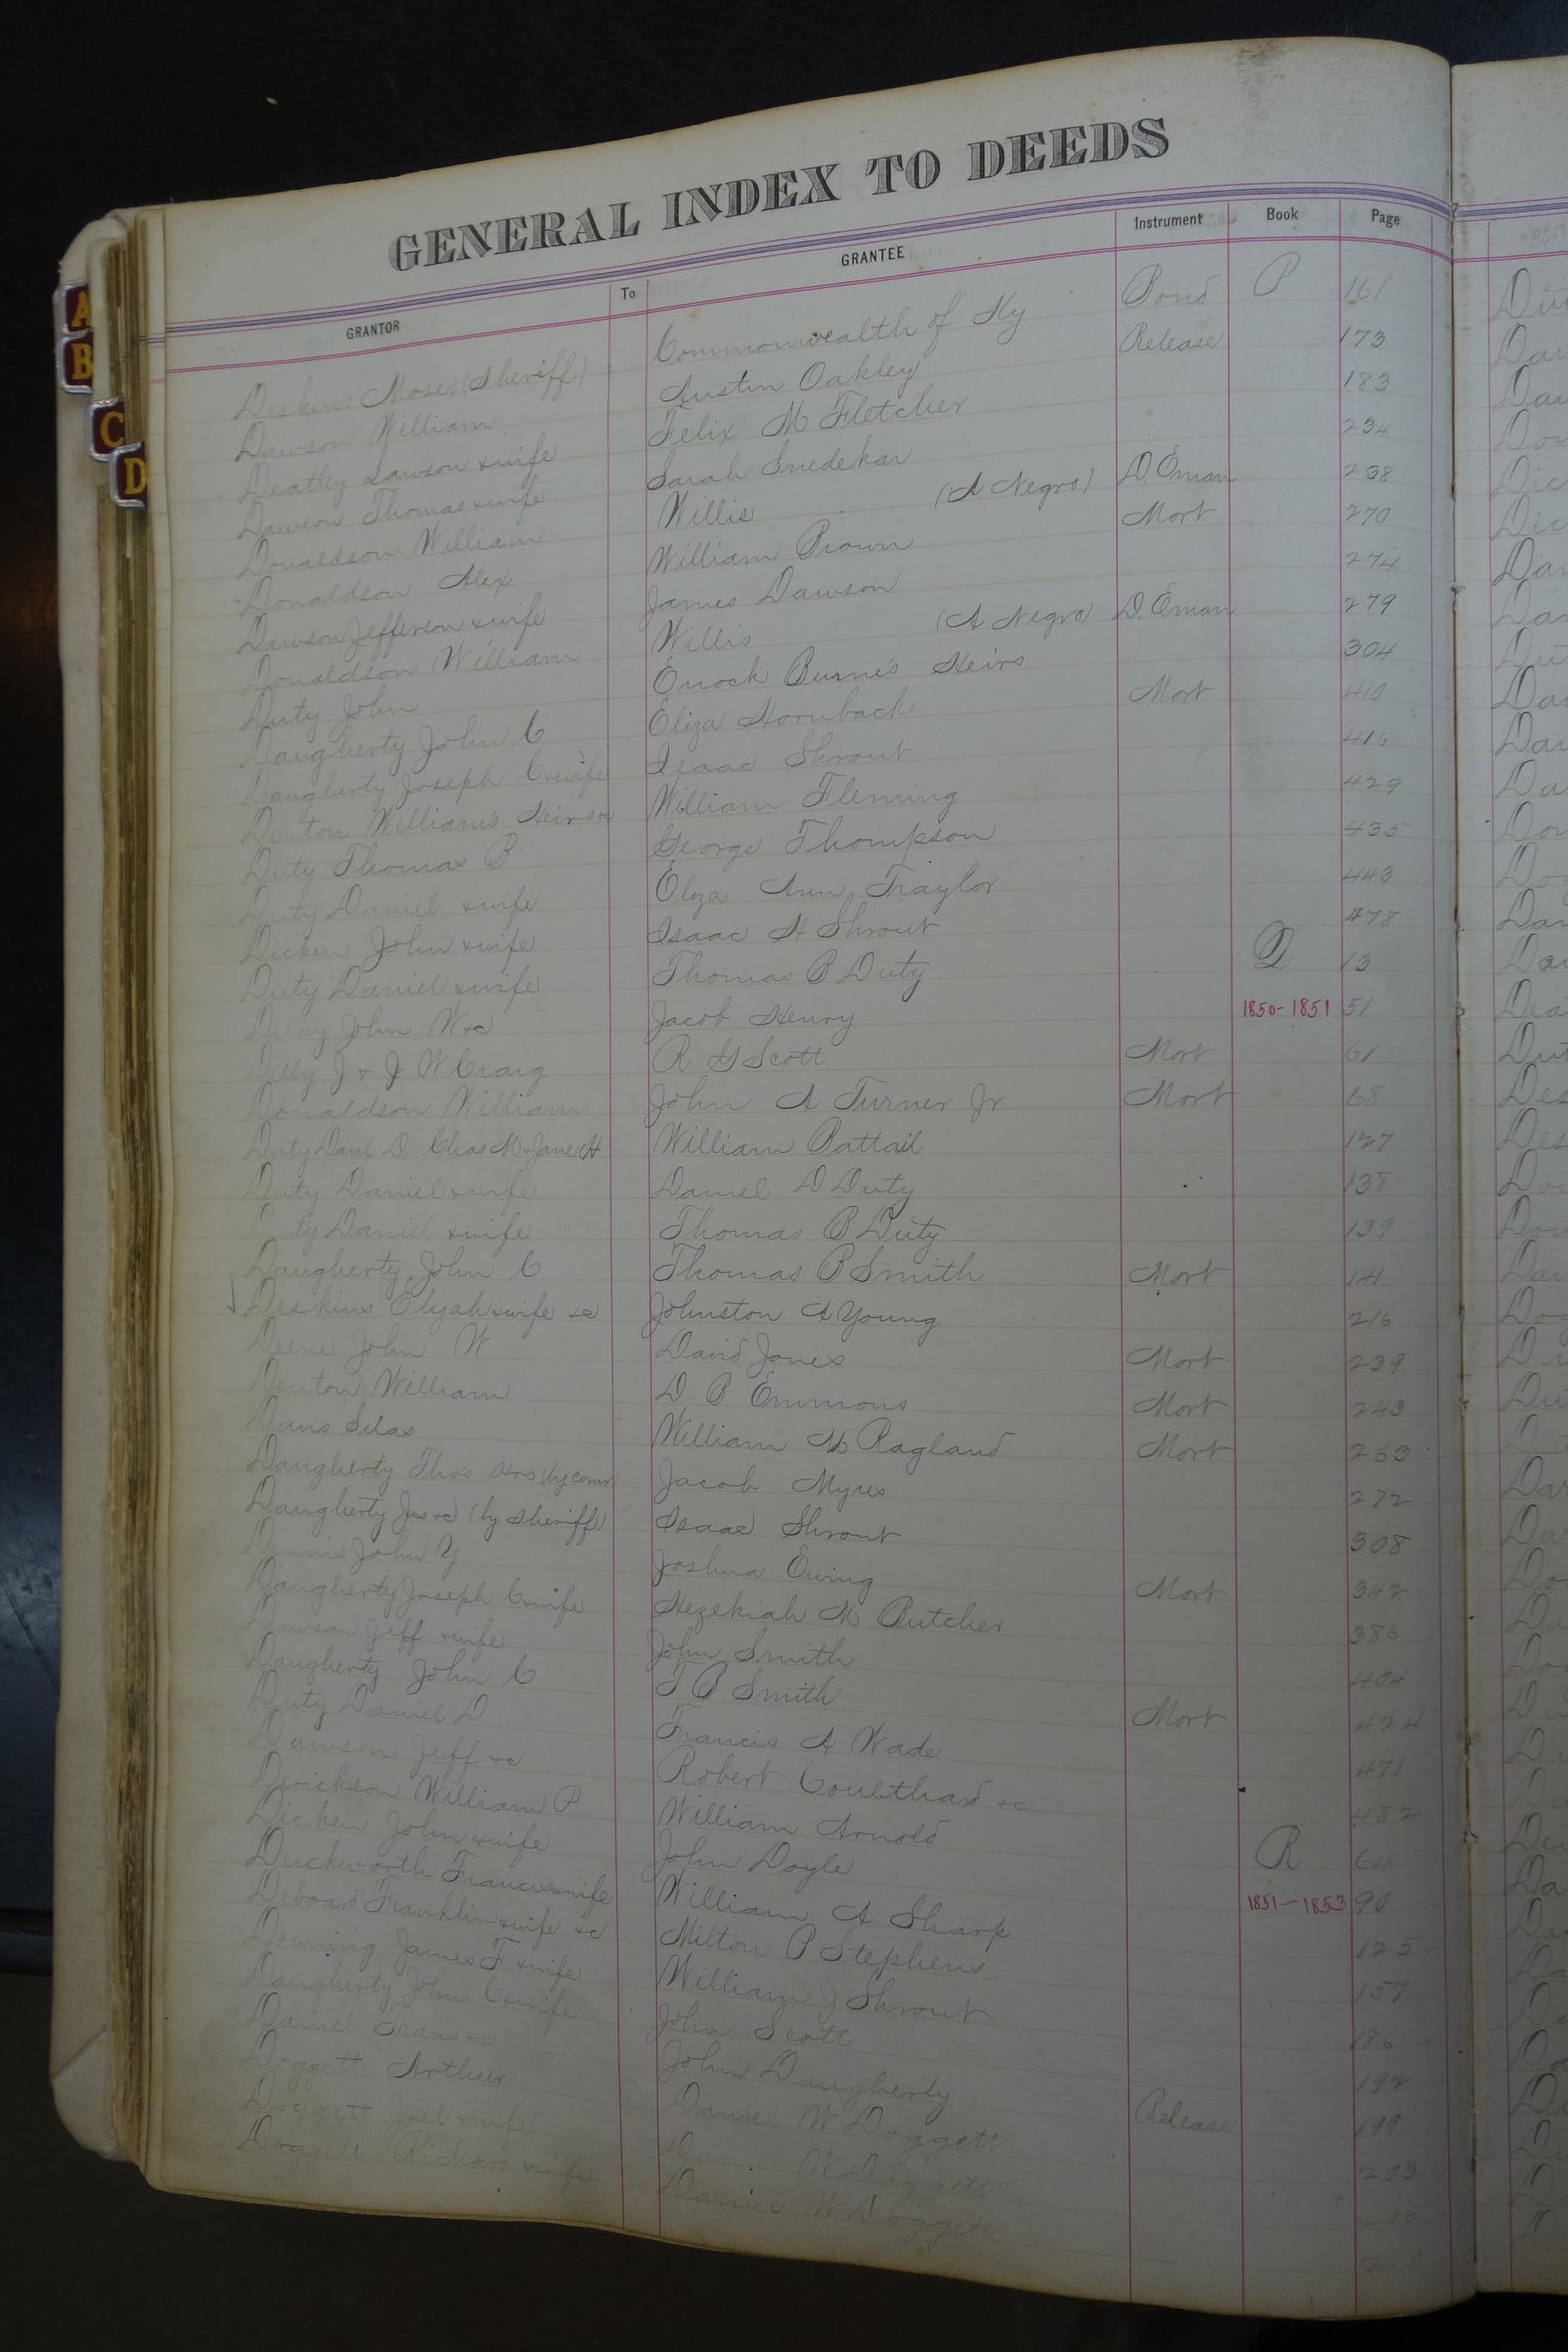 GENERAL INDEX TO DEEDS
GRANTOR To GRANTEE Instrument Book Page
Deskins Moses (Sheriff) Commonwealth of Ky Bond P 161
Dawson William Austin Oakley Release 173
Deatley Lawson &wife Felix M Fletcher 183
Dawson Thomas &wife Sarah Snedekar 234
Donaldson William Willis (A Negro) D. Eman 238
Donaldson Alex William Brown Mort 270
Dawson Jefferson &wife James Dawson 274
Donaldson William Willis (A Negro) D. Eman 279
Duty John Enock Burne's Heirs 304
Daugherty John C Eliza Hornback Mort 410
Daugherty Joseph C &wife Isaac Shrout 416
Denton William's Heirs &c William Fleming 429
Duty Thomas B George Thompson 435
Duty Daniel &wife Eliza Ann Traylor 443
Dicken John &wife Isaac H Shrout 478
Duty Daniel &wife Thomas B Duty Q 13
Delay John W &c Jacob Henry 1850-1851 51
Dilly J & J W Craig R G Scott Mort 61
Donaldson William John A Turner Jr Mort 68
Duty Danl D. Chas M & Jane H William Battail 127
Duty Daniel &wife Daniel D Duty 138
Duty Daniel &wife Thomas B Duty 139
Daugherty John C Thomas B Smith Mort 141
Deskins Elijah &wife &c Johnston A Young 216
Deene John W David Jones Mort 239
Denton William D B Emmons Mort 243
Davis Silas William M Ragland Mort 263
Daugherty Tho's Hrs (by comr) Jacob Myres 272
Daugherty Jas &c (by Sheriff) Isaac Shrout 308
Dennis John Y Joshua Ewing Mort 342
Daugherty Joseph C &wife Hezekiah M Butcher 386
Dawson Jeff &wife John Smith 404
Daugherty John C T B Smith Mort 424
Duty Daniel D Francis A Wade 471
Dawson Jeff &c Robert Coulthard &c 482
Derickson William P William Arnold R 64
Dicken John &wife John Doyle 1851-1853 90
Duckworth Francis &wife William A Sharp 125
Deboard Franklin &wife &c Milton P Stephens 157
Downing James F &wife William J Shrout 186
Daugherty John C &wife John Scott 192
Daniel Travis &c John Daugherty Release 199
Doggett Arthur Daniel W Doggett 203
Doggett Joel &wife Daniel W Doggett
Doggett Richard &wife Daniel W Doggett
A
B
C
D